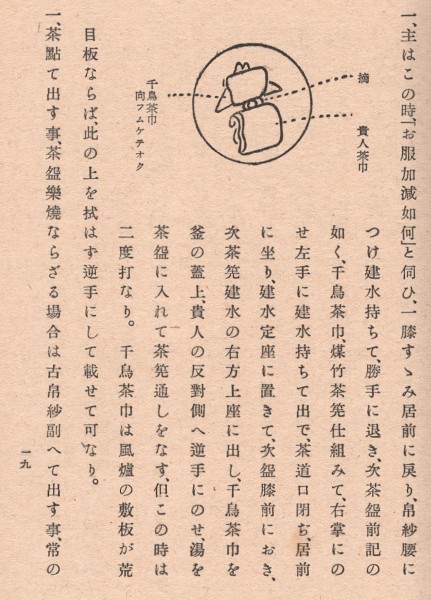 一、主はこの時、「お服加減如何」と伺ひ、一膝すゝみ居前に戻り、帛紗腰に
つけ建水持ちて、勝手に退き、次茶盌前記の
如く、千鳥茶巾、煤竹茶筅仕組みて、右掌にの
せ左手に建水持ちて出で、茶道口閉ぢ、居前
に坐り、建水定座に置きて、次盌膝前におき、
次茶筅建水の右方上座に出し、千鳥茶巾を
釜の蓋上、貴人の反對側へ逆手にのせ、湯を
茶盌に入れて茶筅通しをなす、但この時は
二度打なり。千鳥茶巾は風爐の敷板が荒
目板ならば、此の上を拭はず逆手にして載せて可なり。
一、茶點て出す事、茶盌樂燒ならざる場合は古帛紗副へて出す事、常の
摘
貴人茶巾
千鳥茶巾
向フムケテオク
一九